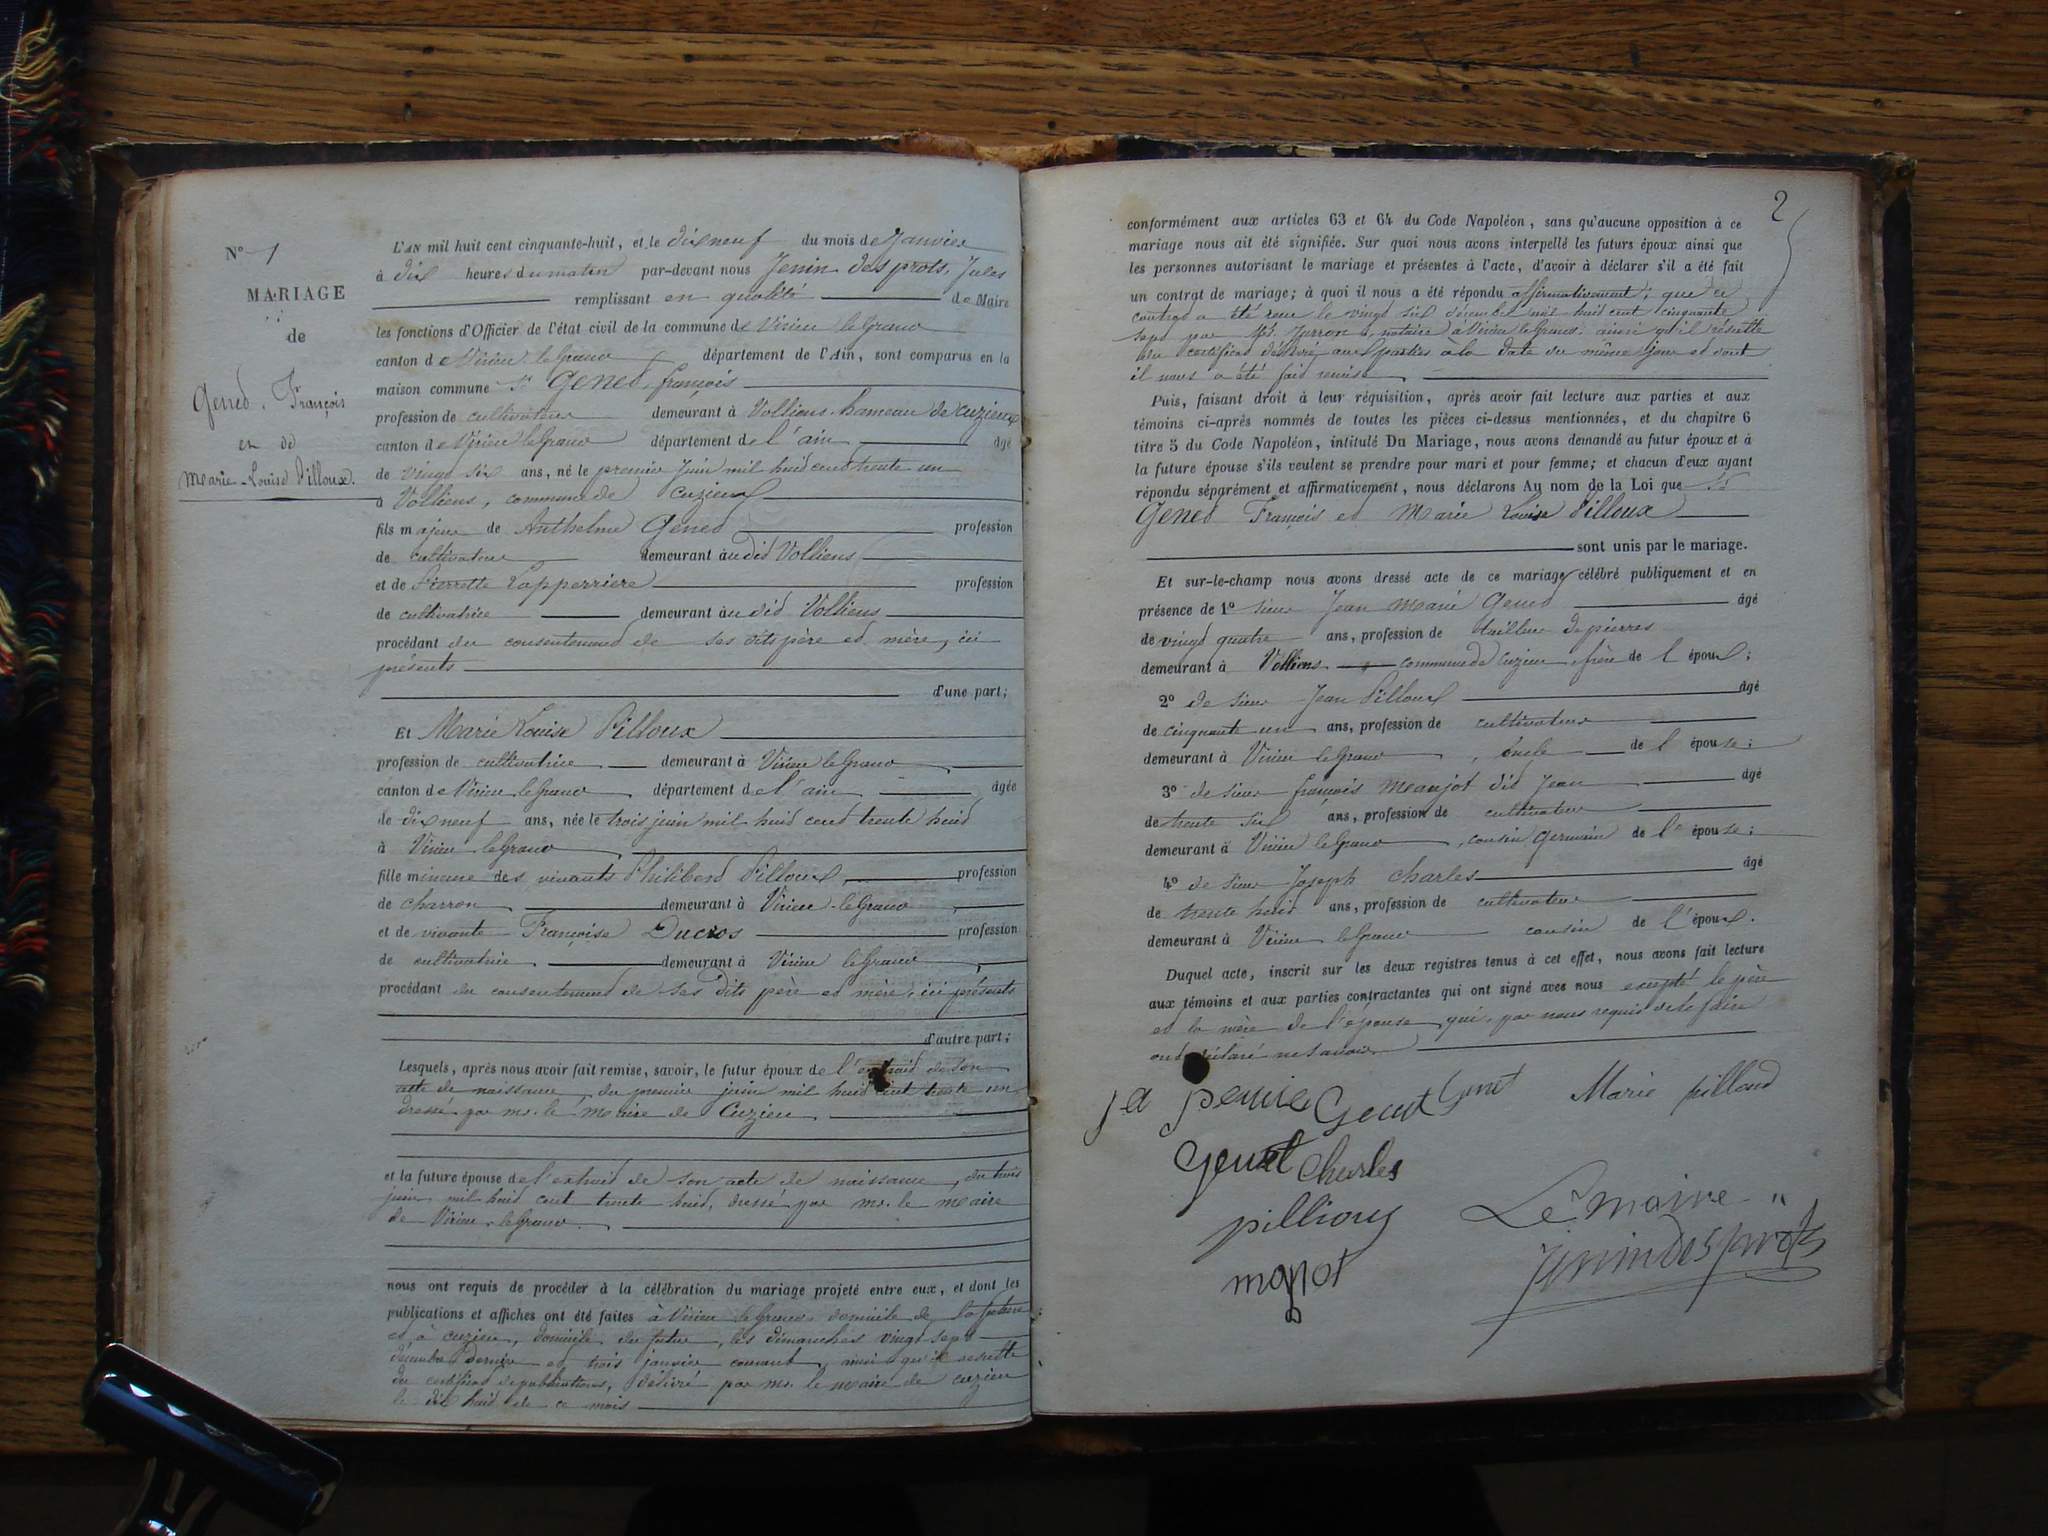 N° 1
MARIAGE
de
Genet, François
et de
Marie-Louise Pilloux.
L'AN mil huit cent cinquante-huit, et le dix neuf du mois de Janvier
à dix heures du matin par-devant nous Jenin des prots, Jules
remplissant en qualité de Maire
les fonctions d'Officier de l'état civil de la commune de Virieu le Grand
canton de Virieu le Grand département de l'Ain, sont comparus en la
maison commune Sr Genet, françois
profession de cultivateur demeurant à Volliens hameau de Cuzieux
canton de Virieu le Grand département de l'ain âgé
de vingt six ans, né le premier Juin mil huit cent trente un
à Volliens, commune de Cuzieux
fils majeur de Anthelme Genet profession
de cultivateur demeurant àudit Volliens
et de Pierrette Lapperriere profession
de cultivatrice demeurant àu dit Volliens
procédant du consentement de ses dits père et mère, ici
présents
d'une part;
Et Marie Louise Pilloux
profession de cultivatrice demeurant à Virieu le Grand
canton de Virieu le Grand département de l'ain âgée
de dix neuf ans, née le trois juin mil huit cent trente huit
à Virieu le Grand
fille mineure des vivants Philibert Pilloux profession
de charron demeurant à Virieu-le Grand
et de vivante Françoise Ducros profession
de cultivatrice demeurant à Virieu le Grand
procédant du consentement de ses dits père et mère, ici présents
d'autre part;
Lesquels, après nous avoir fait remise, savoir, le futur époux de l'extrait de son
acte de naissance, du premier juin mil huit cent trente un
dressé par mr. le Maire de Cuzieu
et la future épouse de l'extrait de son acte de naissance, du trois
juin mil huit cent trente huit, dressé par mr. le maire
de Virieu-le Grand.
nous ont requis de procéder à la célébration du mariage projeté entre eux, et dont les
publications et affiches ont été faites à Virieu le Grand, domicile de la future
et à cuzieu, domicile du futur, les dimanches vingt sept
décembre dernier et trois janvier courant, ainsi qu'il resulte
du certificat de publications, délivré par mr. le maire de cuzieu
le dix huit de ce mois
2
conformément aux articles 63 et 64 du Code Napoléon, sans qu'aucune opposition à ce
mariage nous ait été signifiée. Sur quoi nous avons interpellé les futurs époux ainsi que
les personnes autorisant le mariage et présentes à l'acte, d'avoir à déclarer s'il a été fait
un contrat de mariage; à quoi il nous a été répondu affirmativement; que ce
contrat a été reçu le vingt six décembre mil huit cent cinquante
sept par Me notaire à Virieu le Grand ainsi qu'il résulte
du certificat délivré aux parties à la date du même jour et dont
il nous a été fait remise
Puis, faisant droit à leur réquisition, après avoir fait lecture aux parties et aux
témoins ci-après nommés de toutes les pièces ci-dessus mentionnées, et du chapitre 6
titre 5 du Code Napoléon, intitulé Du Mariage, nous avons demandé au futur époux et à
la future épouse s'ils veulent se prendre pour mari et pour femme; et chacun d'eux ayant
répondu séparément et affirmativement, nous déclarons Au nom de la Loi que Sr
Genet François et Marie Louise Pilloux
sont unis par le mariage.
Et sur-le-champ nous avons dressé acte de ce mariage célébré publiquement et en
présence de 1° sieur Jean Marie Genet âgé
de vingt quatre ans, profession de tailleur de pierres
demeurant à Volliens commune de Cuzieu, frère de l'époux;
2° de sieur Jean Pilloux âgé
de cinquante un ans, profession de cultivateur
demeurant à Virieu le Grand, oncle de l'épouse;
3° de sieur françois Meaujot dit Jean âgé
de trente six ans, profession de cultivateur
demeurant à Virieu le Grand, cousin germain de l'épouse;
4° de sieur Joseph Charles âgé
de trente huit ans, profession de cultivateur
demeurant à Virieu le Grand cousin de l'époux.
Duquel acte, inscrit sur les deux registres tenus à cet effet, nous avons fait lecture
aux témoins et aux parties contractantes qui ont signé avec nous excepté le père
et la mère de l'épouse qui, par nous requis de le faire
ont déclaré ne savoir.
Genet Genet Marie pilloud
Genet Charles
Le Maire
Jenin des prots